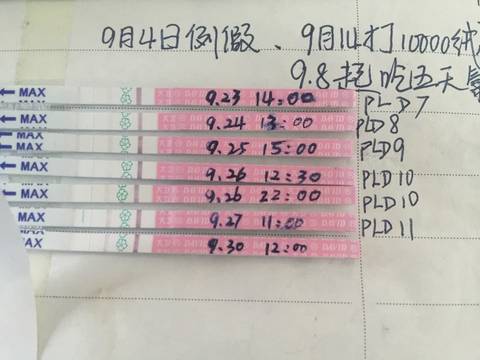 9月4日例假、9月14打10000绒
9.8起吃五天
MAX 9.23 14:00 PLD7
MAX 9.24 13:00 PLD8
MAX 9.25 15:00 PLD9
MAX 9.26 12:30 PLD10
MAX 9.26 22:00 PLD10
MAX 9.27 11:00 PLD11
MAX 9.30 12:00